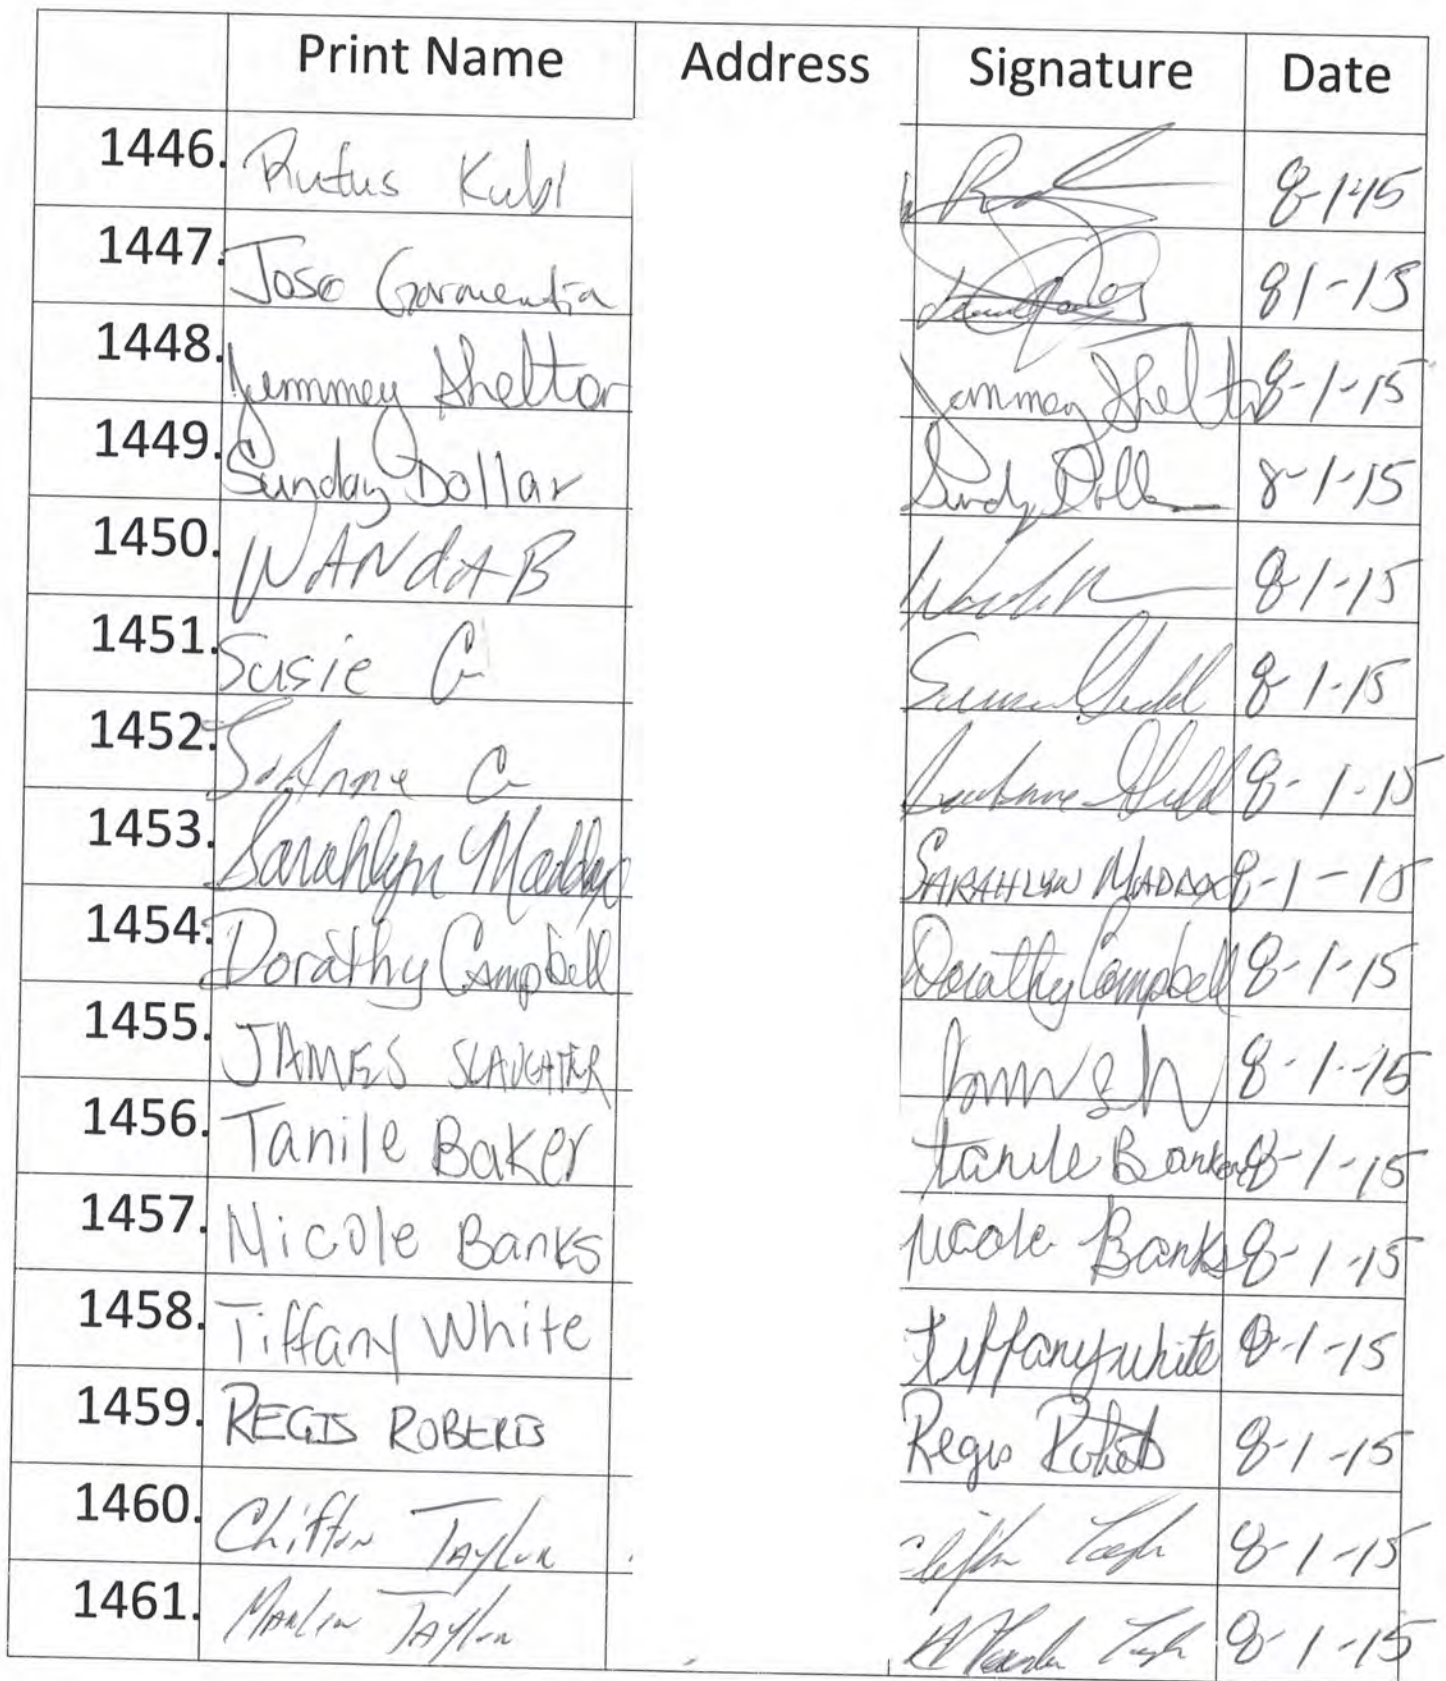 Print Name Address Signature Date
1446. Rufus Kubi 8-1-15
1447. Jose Garmentia 81-15
1448. Jemmey Shelton Jemmey Shelton 8-1-15
1449. Sunday Dollar 8-1-15
1450. WANdA B 8-1-15
1451. Susie G 8-1-15
1452. G 8-1-15
1453. Sarahlyn Maddox SARAHLYN MADDOX 8-1-15
1454. Dorathy Campbell Dorathy Campbell 8-1-15
1455. JAMES SLAUGHTER 8-1-15
1456. Tanile Baker tanile 8-1-15
1457. Nicole Banks Nicole Banks 8-1-15
1458. Tiffany White tiffany white 8-1-15
1459. REGIS ROBERTS Regis Roberts 8-1-15
1460. Clifton Taylor 8-1-15
1461. Taylor 8-1-15